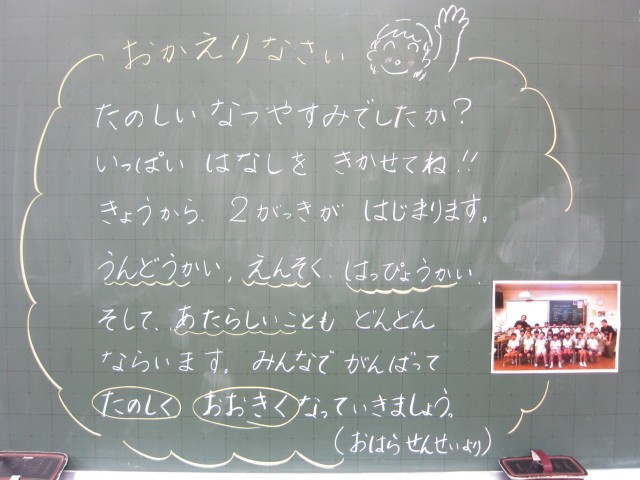 おかえりなさい
たのしい なつやすみでしたか?
いっぱい はなしを きかせてね!!
きょうから、2がっきが はじまります。
うんどうかい、えんそく、はっぴょうかい、
そして、あたらしいことも どんどん
ならいます。みんなで がんばって
たのしく おおきく なっていきましょう。
(おはらせんせいより)